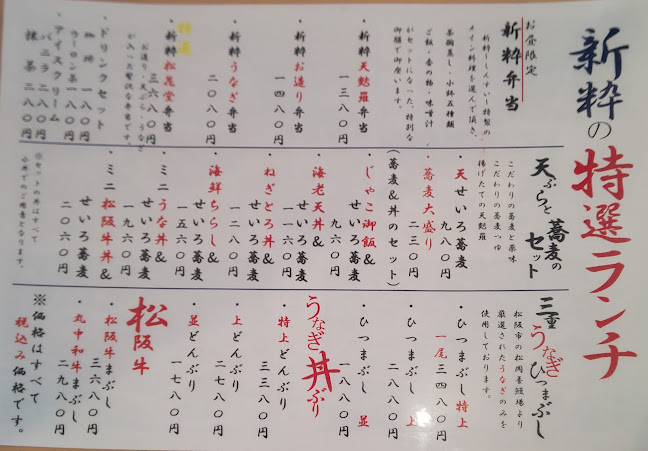 新粋の特選ランチ
お昼限定
新粋弁当
新粋～しんすい～特製の
メイン料理を選んで頂き、
茶碗蒸し・小鉢五種類
ご飯・香の物・味噌汁
がセットになった、特別な
御膳で御座います。
・新粋 天麩羅 弁当
一三八〇円
・新粋 お造り 弁当
一四八〇円
・新粋 うなぎ 弁当
二〇八〇円
特選
・新粋 松花堂 弁当
三六八〇円
お造り、天ぷら、うなぎ
が入った贅沢な弁当です。
・ドリンクセット
珈琲 一八〇円
ウーロン茶 一八〇円
・アイスクリーム
バニラ 二八〇円
抹茶 二八〇円
天ぷらと蕎麦のセット
こだわりの蕎麦と風味
こだわりの蕎麦つゆ
揚げたての天麩羅
・天せいろ蕎麦
九八〇円
・蕎麦大盛り
二三〇円
(蕎麦&丼のセット)
・じゃこ御飯&
せいろ蕎麦
九六〇円
・海老天丼&
せいろ蕎麦
一一六〇円
・ねぎとろ丼&
せいろ蕎麦
一二八〇円
・海鮮ちらし&
せいろ蕎麦
一五六〇円
・ミニうな丼&
せいろ蕎麦
一九六〇円
・ミニ松阪牛丼&
せいろ蕎麦
二〇六〇円
※セットの丼はすべて
小丼でのご用意となります。
三重うなぎひつまぶし
松阪市の松岡養鰻場より
厳選されたうなぎのみを
使用しております。
・ひつまぶし 特上
一尾 三四八〇円
・ひつまぶし 上
二八八〇円
・ひつまぶし 並
一八八〇円
うなぎ丼ぶり
・特上どんぶり
三三八〇円
・上どんぶり
二七八〇円
・並どんぶり
一七八〇円
松阪牛
・松阪牛まぶし
三六八〇円
・丸中和牛まぶし
二九八〇円
※価格はすべて
税込み価格です。